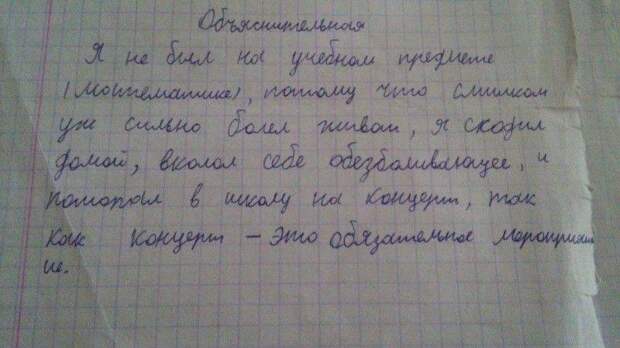 Объяснительная
Я не был на учебном предмете
(математике), потому что слишком
уж сильно болел живот, я сходил
домой, вколол себе обезболивающее, и
помотал в школу на концерт, так
как концерт — это обязательное мероприяти
ие.